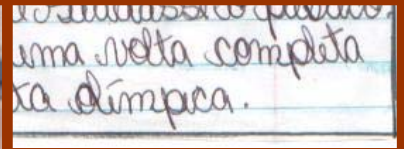 uma volta completa
ta olímpica.